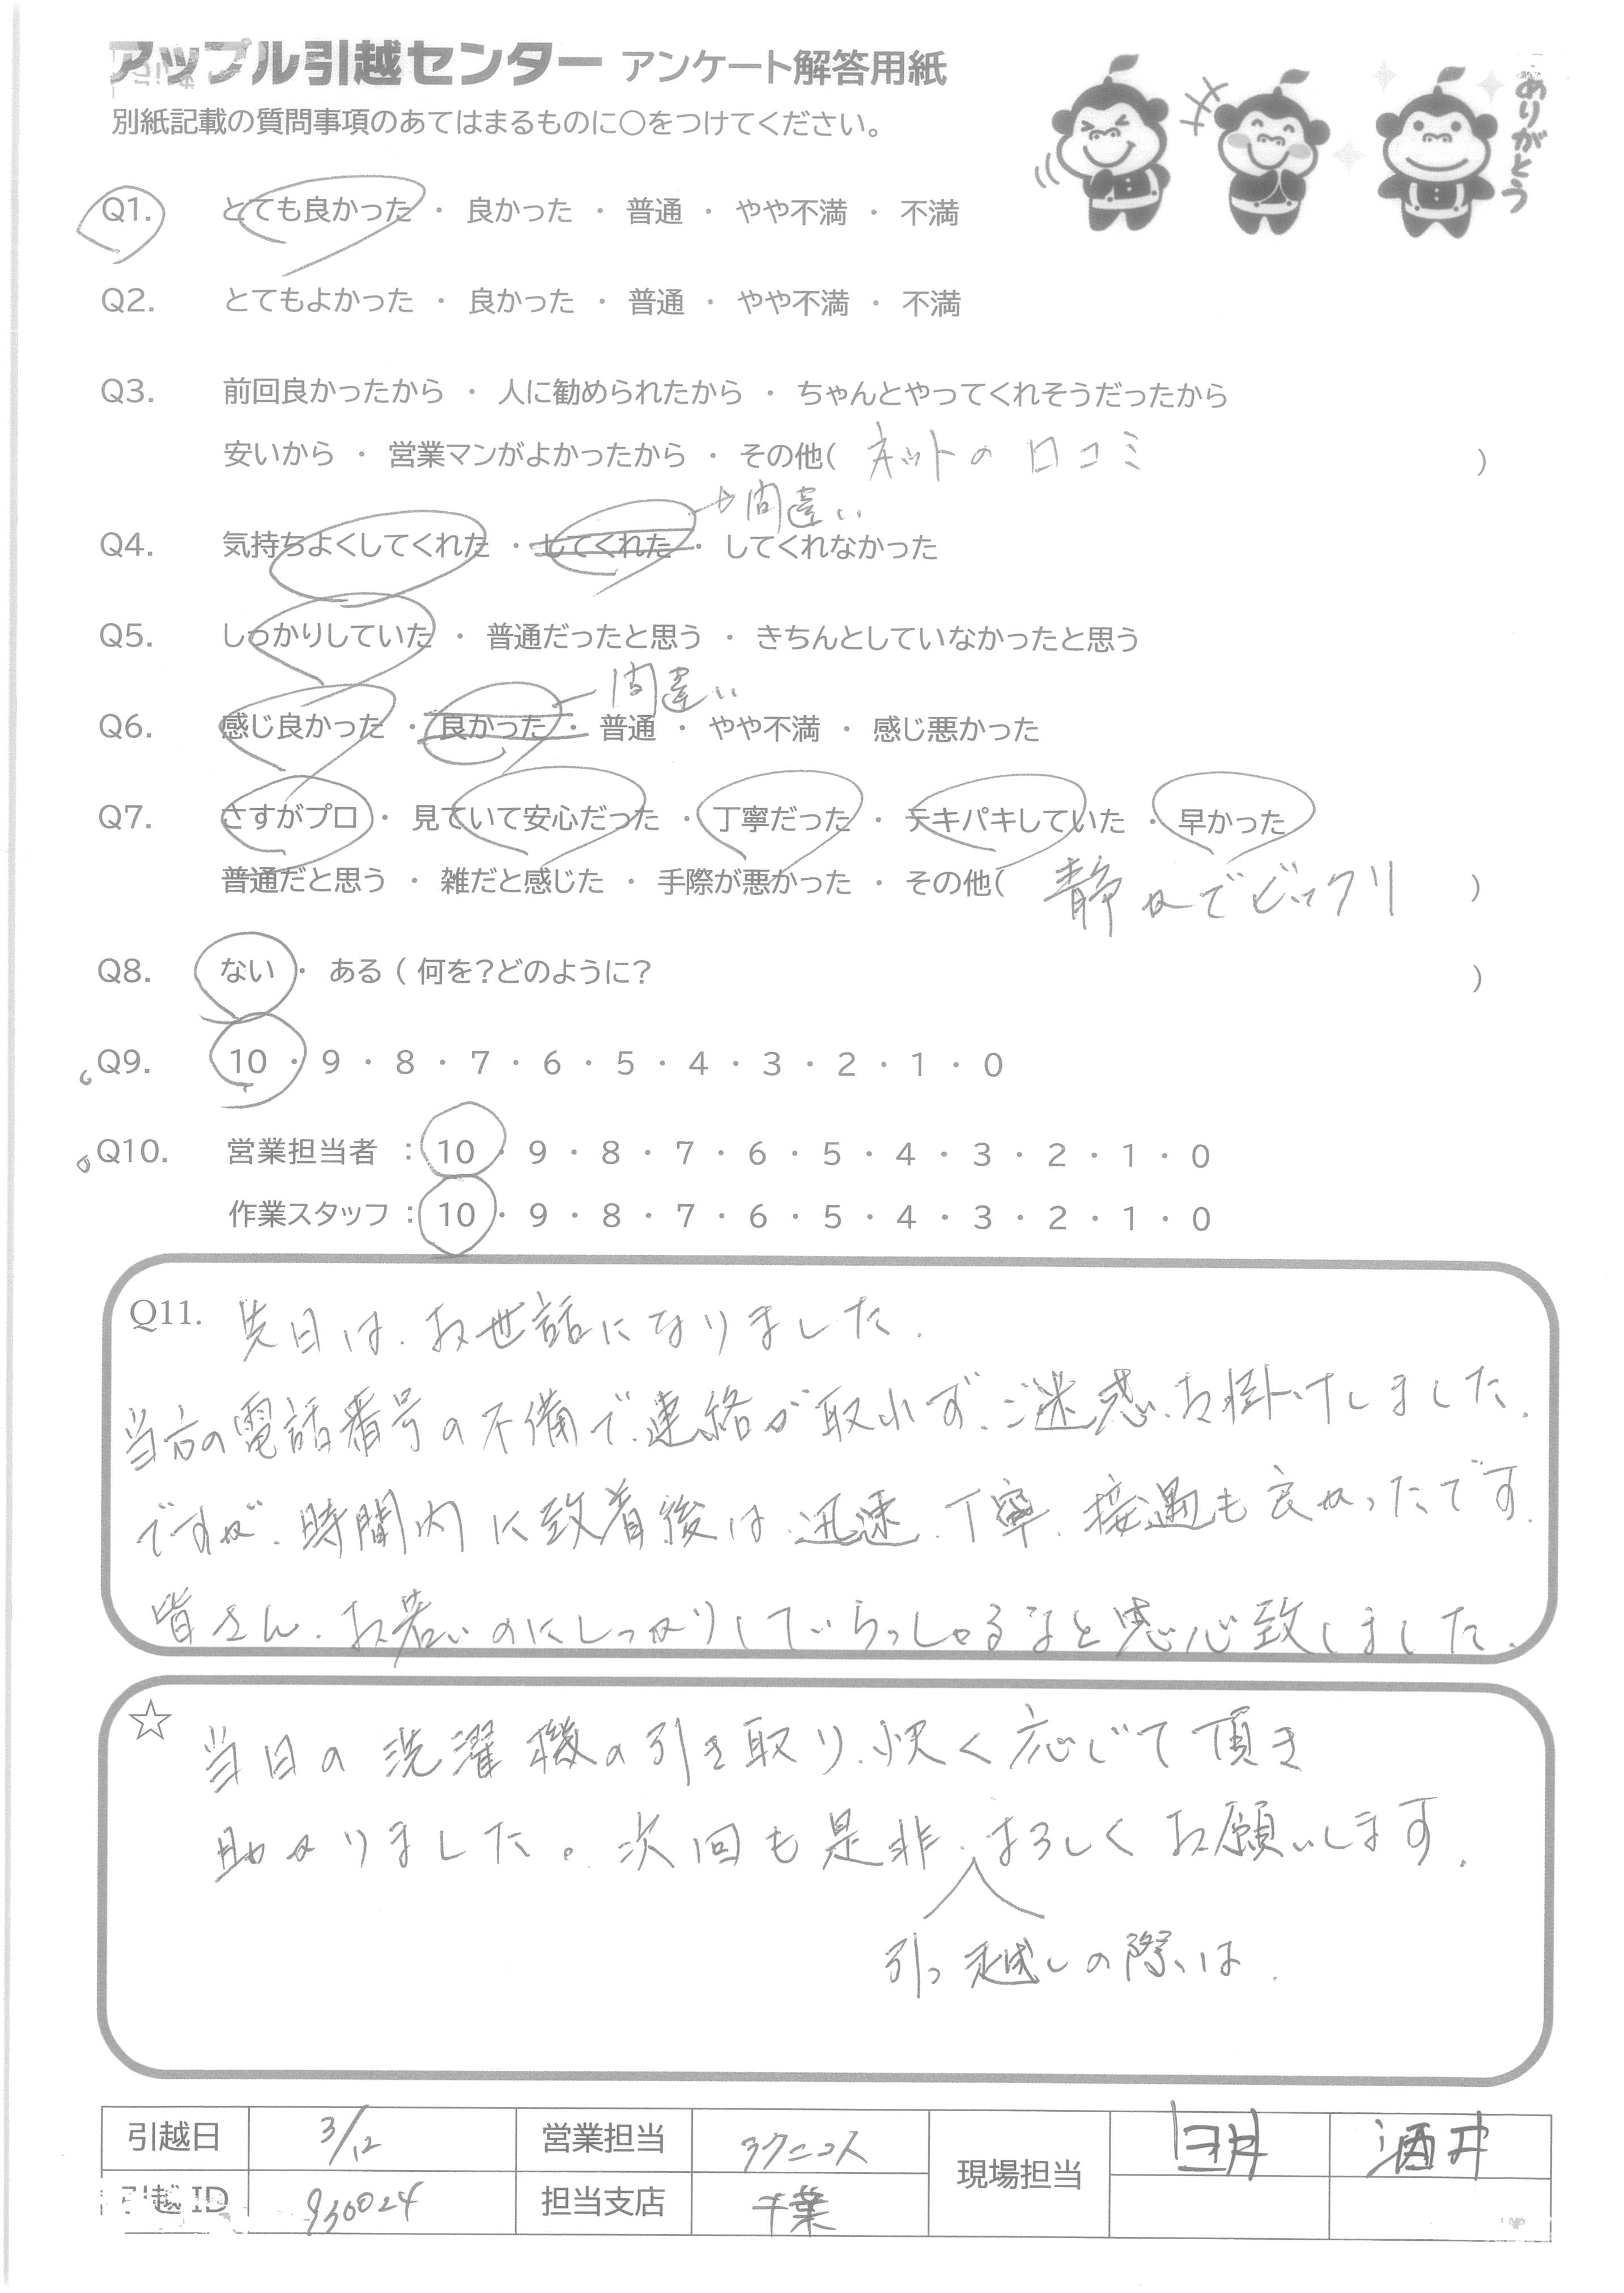 アップル引越センター アンケート解答用紙
別紙記載の質問事項のあてはまるものに○をつけてください。
ありがとう
Q1. とても良かった ・ 良かった ・ 普通 ・ やや不満 ・ 不満
Q2. とてもよかった ・ 良かった ・ 普通 ・ やや不満 ・ 不満
Q3. 前回良かったから ・ 人に勧められたから ・ ちゃんとやってくれそうだったから
安いから ・ 営業マンがよかったから ・ その他( ネットの口コミ )
→間違い
Q4. 気持ちよくしてくれた ・ してくれた ・ してくれなかった
Q5. しっかりしていた ・ 普通だったと思う ・ きちんとしていなかったと思う
間違い
Q6. 感じ良かった ・ 良かった ・ 普通 ・ やや不満 ・ 感じ悪かった
Q7. さすがプロ ・ 見ていて安心だった ・ 丁寧だった ・ テキパキしていた ・ 早かった
普通だと思う ・ 雑だと感じた ・ 手際が悪かった ・ その他( 静かでビックリ )
Q8. ない ・ ある ( 何を?どのように? )
Q9. 10 ・ 9 ・ 8 ・ 7 ・ 6 ・ 5 ・ 4 ・ 3 ・ 2 ・ 1 ・ 0
Q10. 営業担当者 : 10 ・ 9 ・ 8 ・ 7 ・ 6 ・ 5 ・ 4 ・ 3 ・ 2 ・ 1 ・ 0
作業スタッフ : 10 ・ 9 ・ 8 ・ 7 ・ 6 ・ 5 ・ 4 ・ 3 ・ 2 ・ 1 ・ 0
Q11. 先日は、お世話になりました.
当方の電話番号の不備で、連絡が取れず、ご迷惑、お掛けしました.
ですが、時間内に致着後は迅速、丁寧、接遇も良かったです.
皆さん、お若いのにしっかりしていらっしゃるなと感心致しました.
☆ 当日の洗濯機の引き取り、快く応じて頂き
助かりました。次回も是非、よろしくお願いします.
引っ越しの際は、
引越日 3/12 営業担当 現場担当 臼井 酒井
引越ID 930024 担当支店 千葉